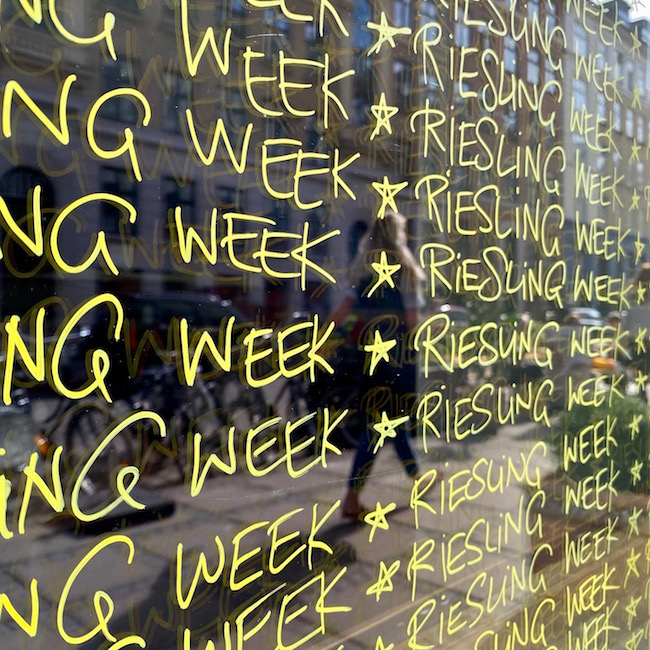 WEEK ☆
RIESLING WEEK ☆
EEK ☆ RIESLING WEEK ☆
NG WEEK ☆ RIESLING WEEK ☆
NG WEEK ☆ RIESLING WEEK ☆
NG WEEK ☆ RiESLiNG WEEK ☆
NG WEEK ☆ RiESLiNG WEEK ☆
iNG WEEK ☆ RIESLiNG WEEK ☆
NG WEEK ☆ RIESLING WEEK ☆
WEEK ☆ RIESLING WEEK ☆
☆ RIESLiNG WEEK ☆
RIESLING WEEK ☆
WEEK